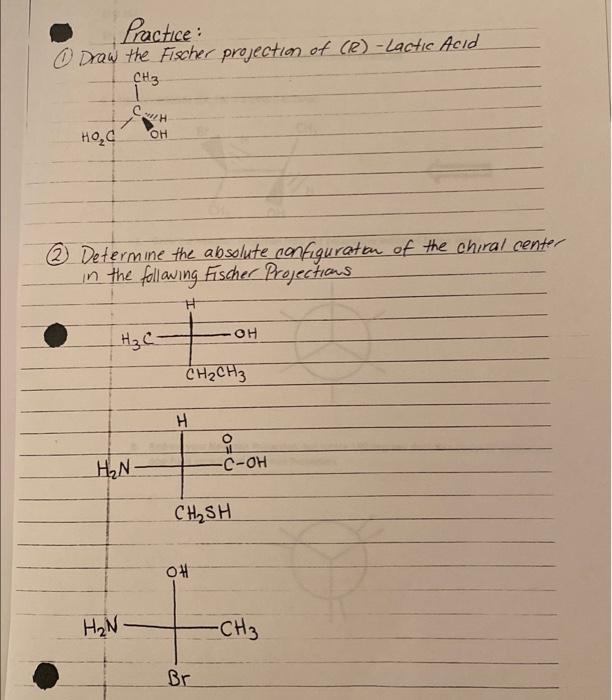 Practice:
① Draw the Fischer projection of (R)-Lactic Acid
CH3
C
H
HO2C
OH
② Determine the absolute configuraton of the chiral center
in the following Fischer Projections
H
H3C
OH
CH2CH3
H
O
H2N
C-OH
CH2SH
OH
H2N
CH3
Br